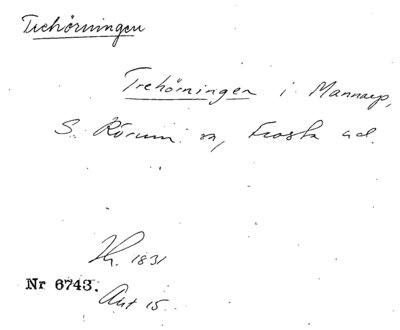 Trehörningen
Trehörningen i Mannarp,
S. Rörum sn, Frosta hd.
1831
Nr 6743.
Akt 15